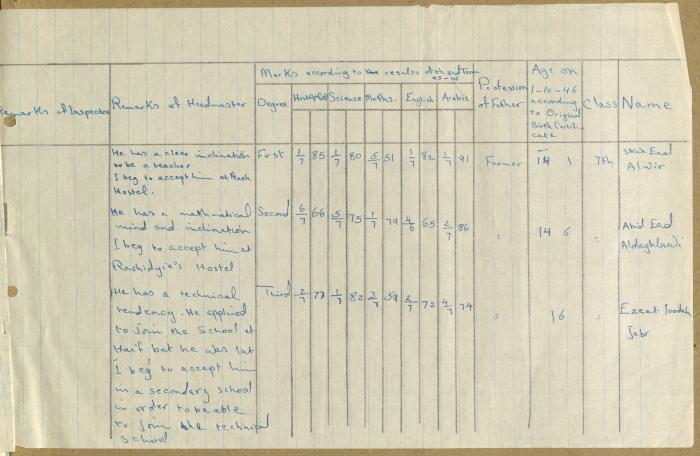 Marks according to the results of the 2nd Term
45-46
Remarks of Inspector
Remarks of Headmaster
Degree
Hist
Science
Maths.
English
Arabic
Profession
of Father
Age on
1-10-46
according
to Original
Birth Certifi-
cate
Class
Name
He has a clear inclination
to be a teacher
I beg to accept him at Rash
Hostel.
First 1/7 85 1/7 80 5/7 51 1/7 82 1/7 91 Farmer 14 1 7th
Eead
Alwir
He has a mathmatical
mind and inclination
I beg to accept him at
Rashidyia's Hostel
Second 6/7 66 5/7 75 1/7 79 4/6 65 2/7 86 " 14 6 "
Abid Eed
Aldaghlawi
He has a technical
tendency. He applied
to join the School at
Haif but he was lat
I beg to accept him
in a secondary school
in order to be able
to join the technical
school
Third 2/7 77 1/7 82 3/7 59 2/7 72 4/7 74 " 16 "
Ezzat Joodah
Jabr